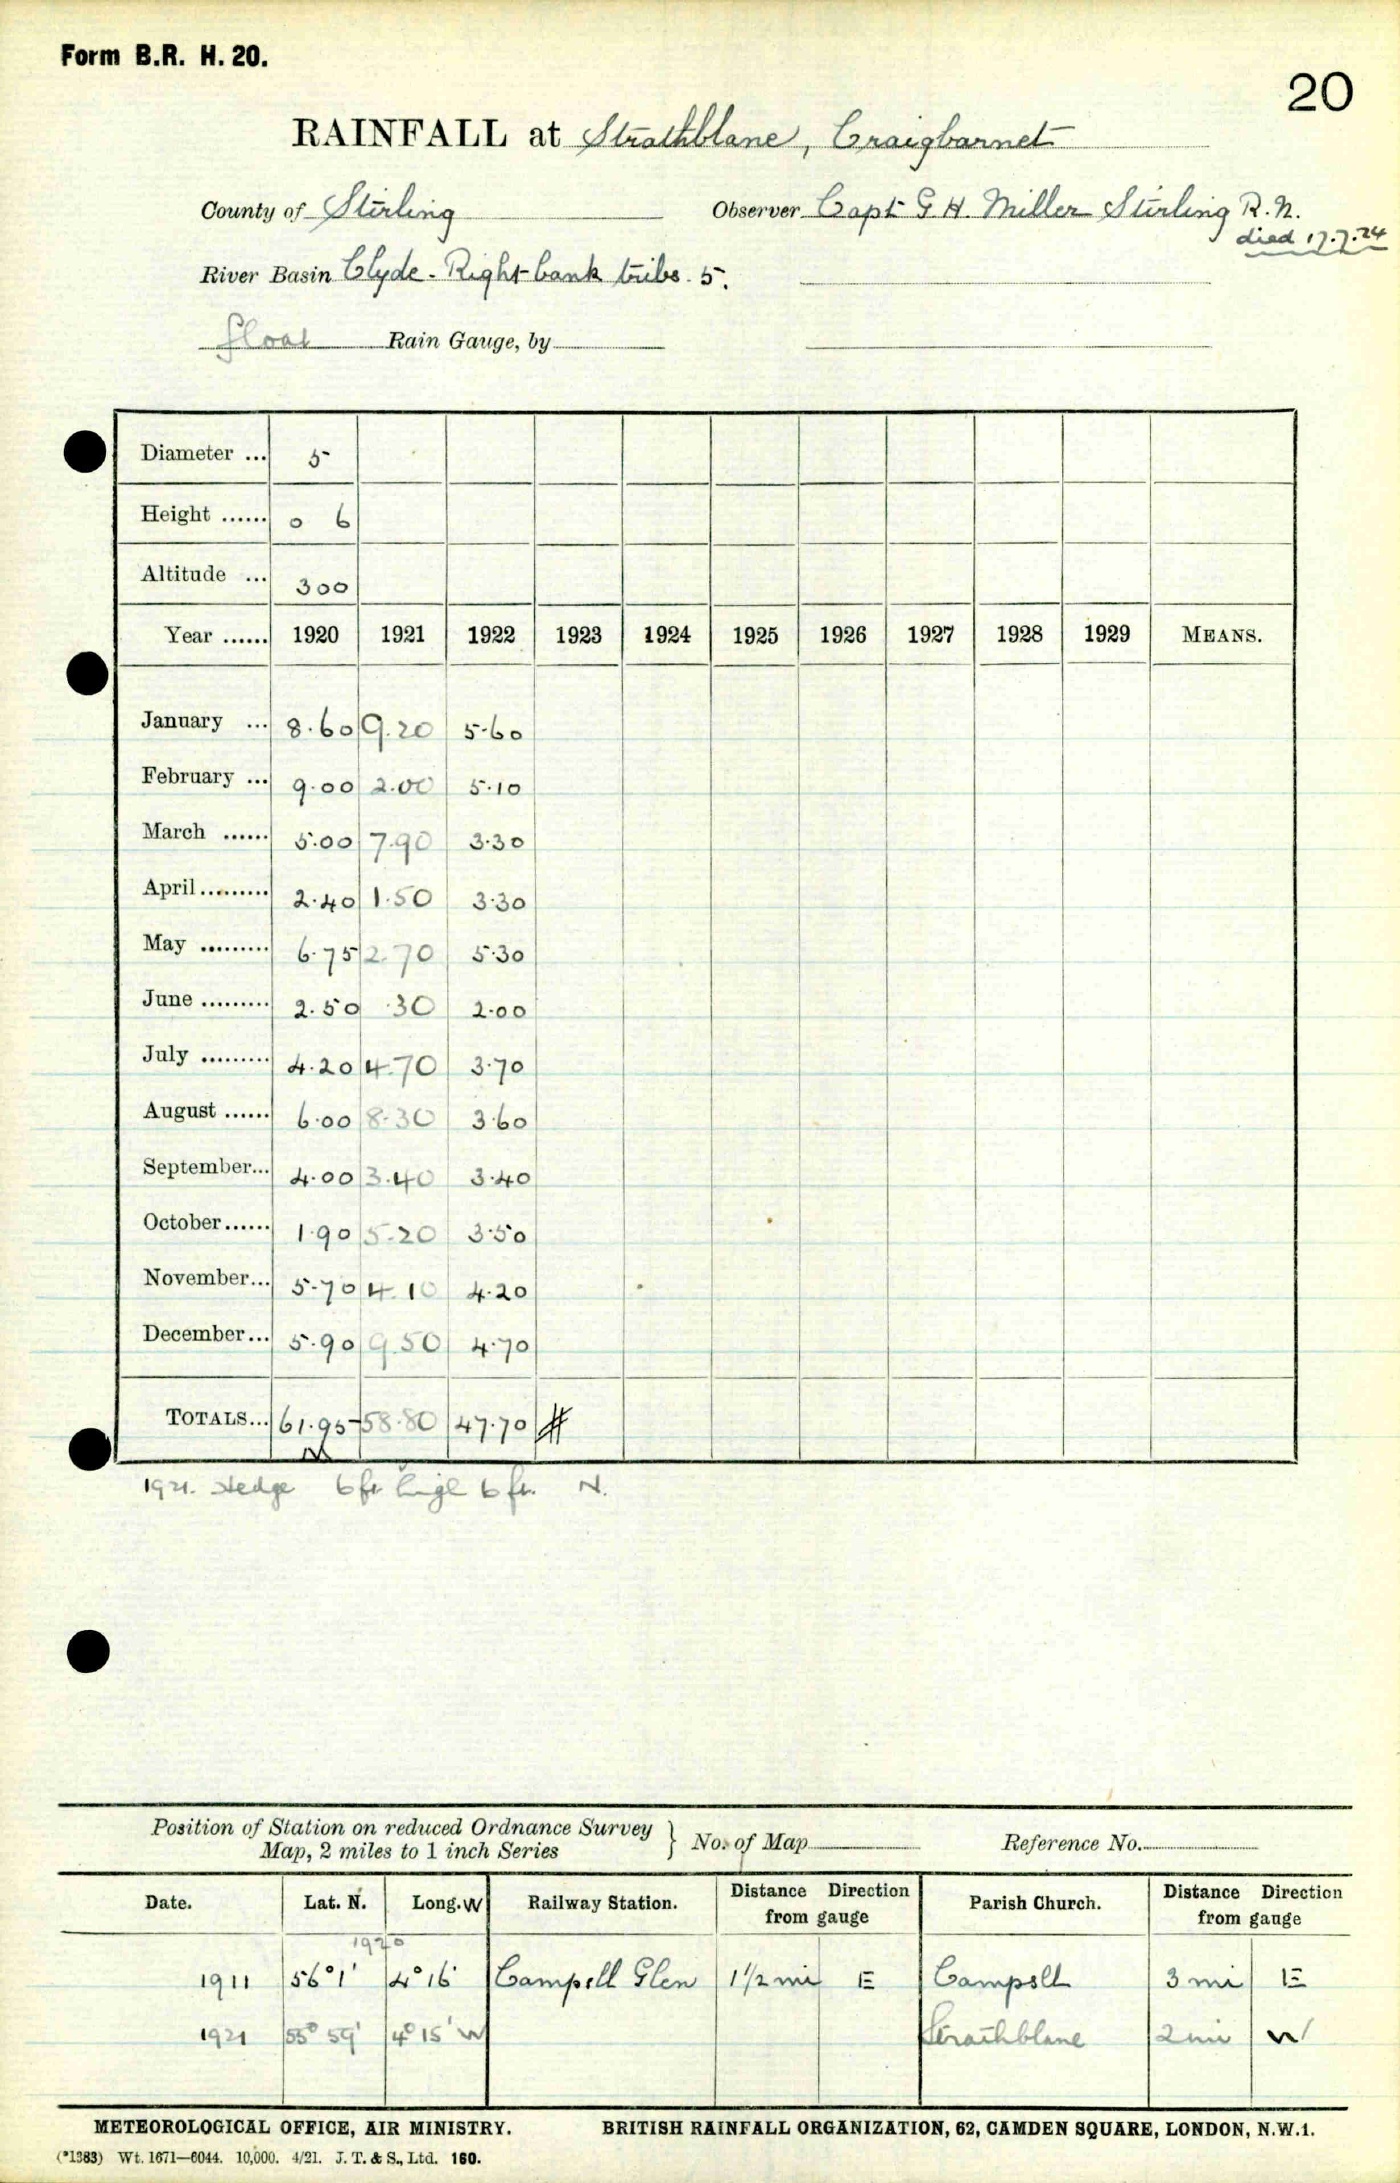 Form B.R. H. 20.
20
RAINFALL at Strathblane, Craigbarnet
County of Stirling Observer Capt G H. Miller Stirling R.N.
died 17.7.24
River Basin Clyde - Right bank tribs. 5.
float Rain Gauge, by
Diameter ... 5
Height ...... 0 6
Altitude ... 300
Year ...... 1920 1921 1922 1923 1924 1925 1926 1927 1928 1929 MEANS.
January ... 8.60 9.20 5.60
February ... 9.00 2.00 5.10
March ...... 5.00 7.90 3.30
April ......... 2.40 1.50 3.30
May ......... 6.75 2.70 5.30
June ......... 2.50 .30 2.00
July ......... 4.20 4.70 3.70
August ...... 6.00 8.30 3.60
September... 4.00 3.40 3.40
October...... 1.90 5.20 3.50
November... 5.70 4.10 4.20
December... 5.90 9.50 4.70
TOTALS... 61.95 58.80 47.70 #
1921. Hedge 6 ft high 6 ft. N.
Position of Station on reduced Ordnance Survey
Map, 2 miles to 1 inch Series } No. of Map Reference No.
Date. Lat. N. Long. W Railway Station. Distance Direction from gauge Parish Church. Distance Direction from gauge
1920
1911 56° 1' 4° 16' Campsll Glen 1 1/2 mi E Campsll 3 mi E
1921 55° 59' 4° 15' W Strathblane 2 mi W
METEOROLOGICAL OFFICE, AIR MINISTRY. BRITISH RAINFALL ORGANIZATION, 62, CAMDEN SQUARE, LONDON, N.W.1.
(*1383) Wt. 1671—6044. 10,000. 4/21. J. T. & S., Ltd. 160.